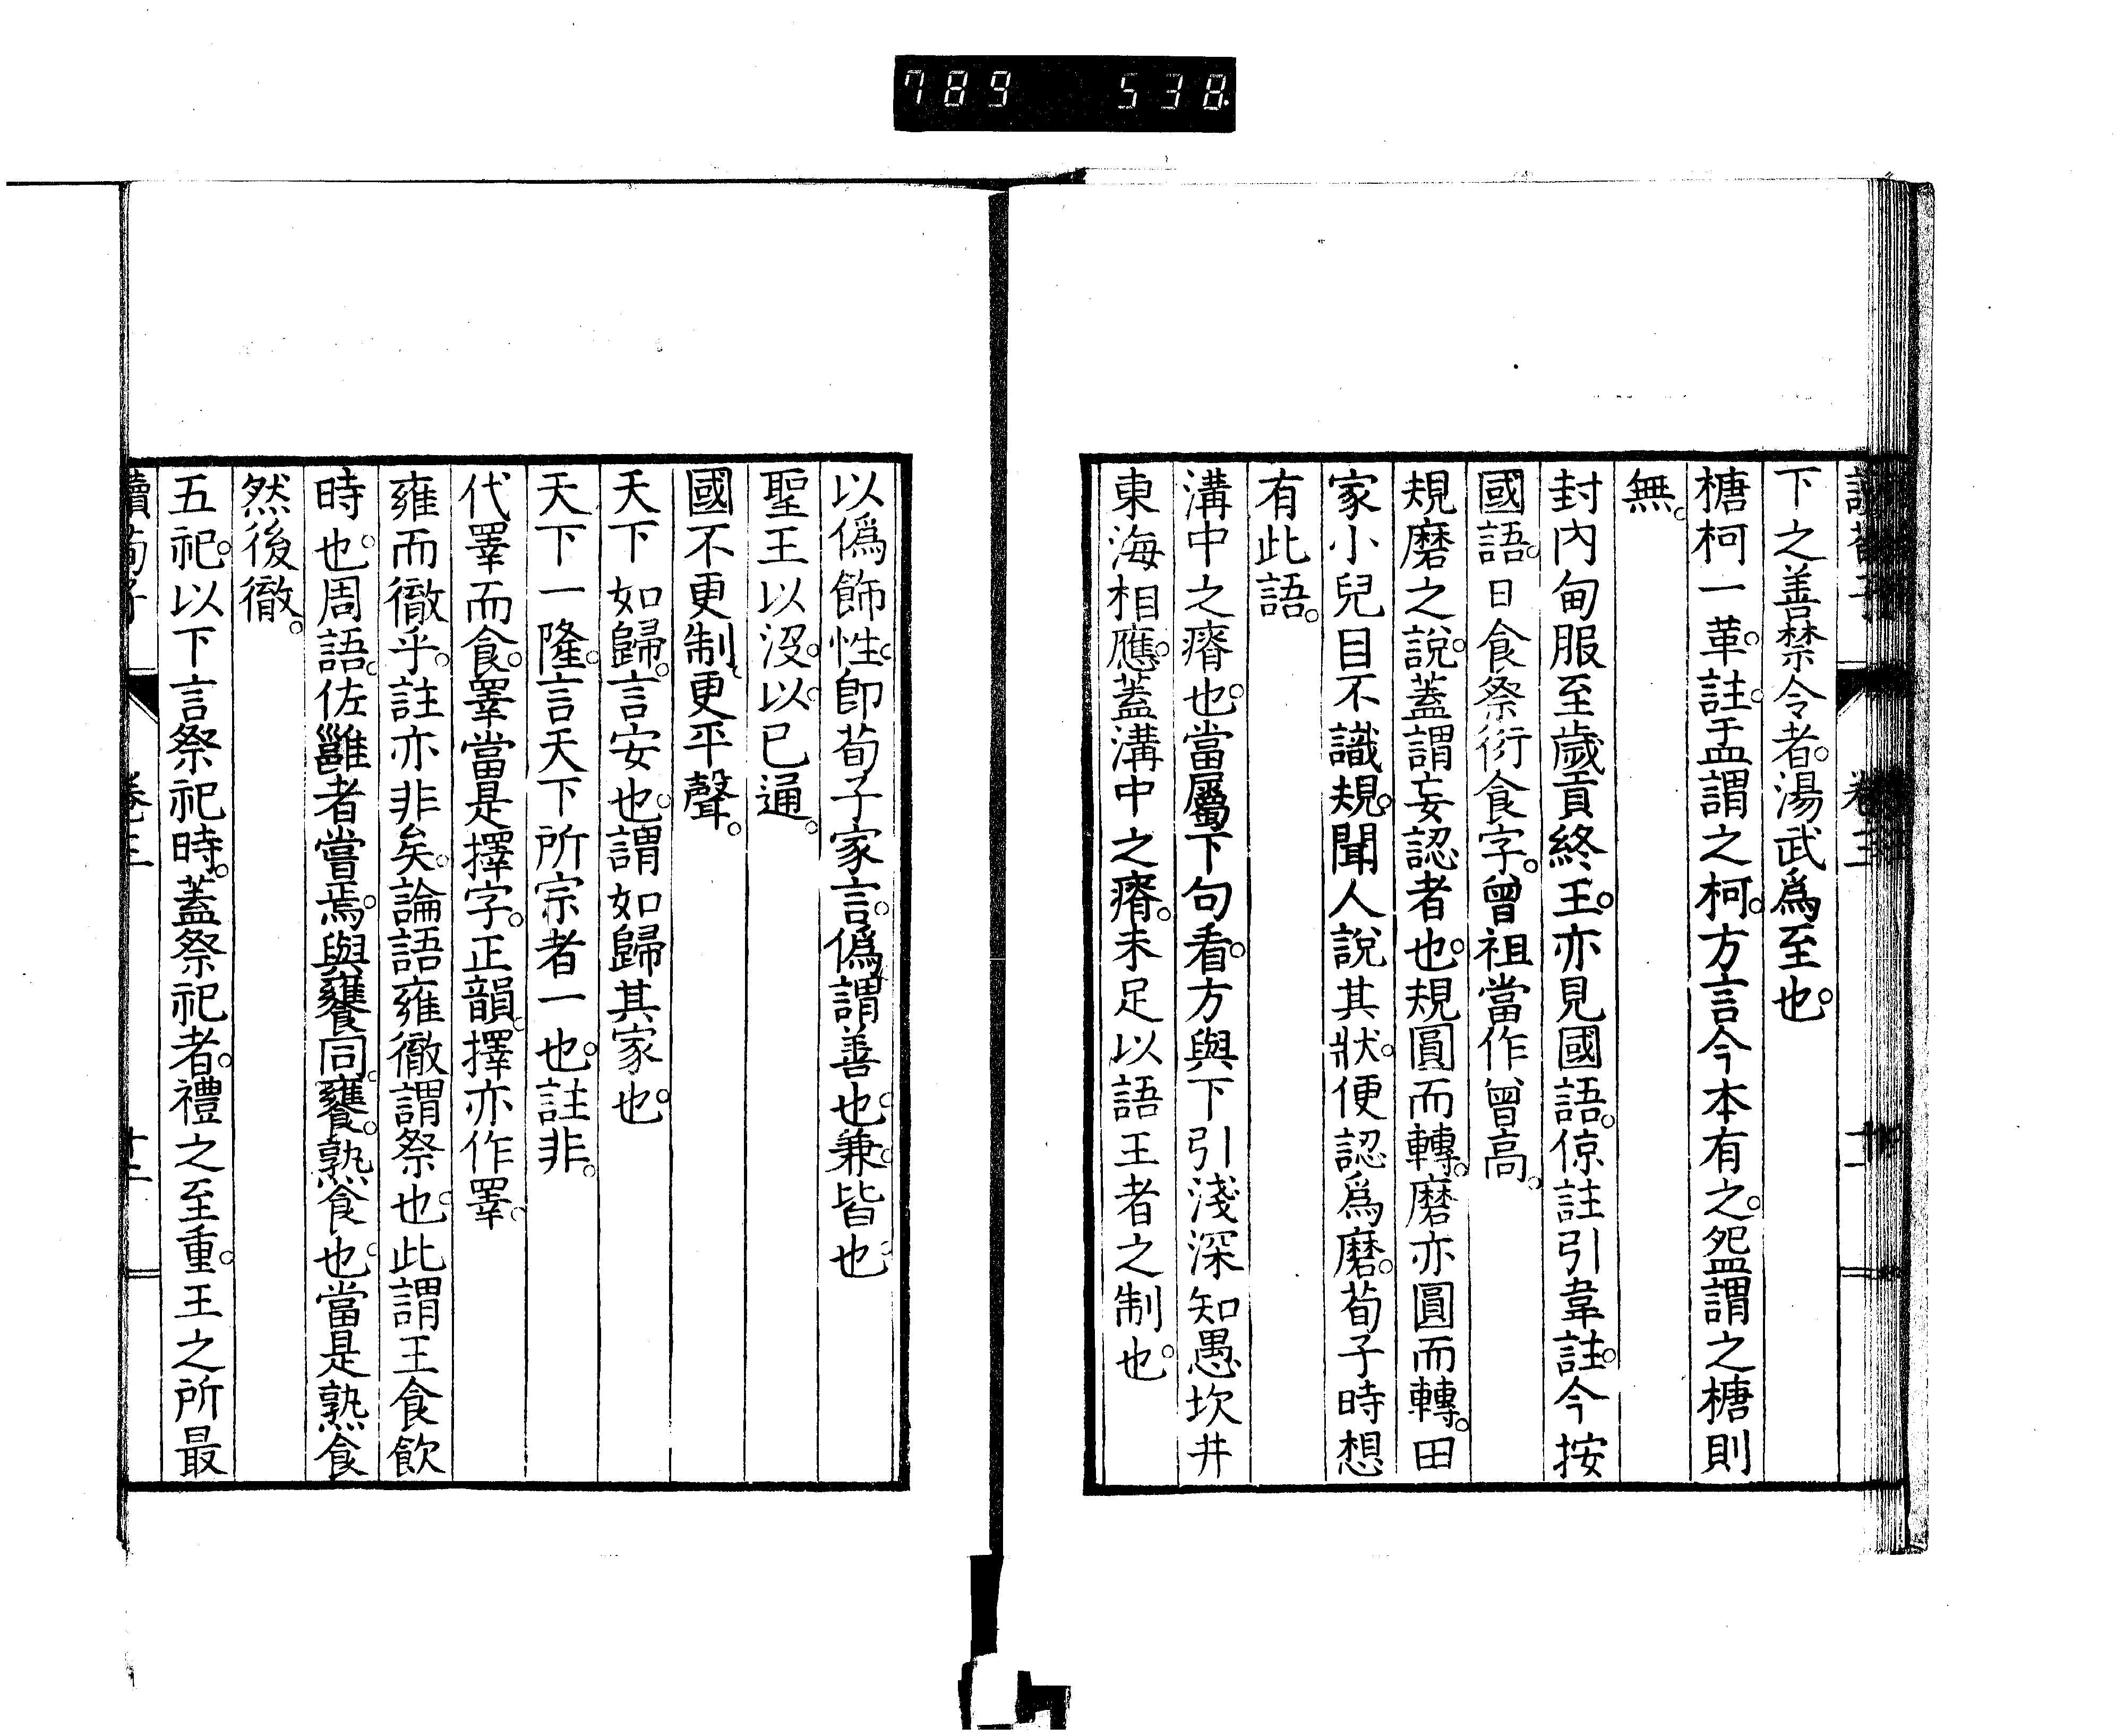 789 538
讀荀子 卷三 十一
下之善禁令者。湯武爲至也。
榶柯一革。註。盂謂之柯。方言今本有之。㿿謂之榶則
無。
封內甸服至歲貢終王。亦見國語。倞註引韋註。今按
國語。日食祭衍食字。曾祖當作曾高。
規磨之說。蓋謂妄認者也。規圓而轉。磨亦圓而轉。田
家小兒目不識規。聞人說其狀。便認爲磨。荀子時想
有此語。
溝中之瘠也。當屬下句看。方與下引淺深知愚坎井
東海相應。蓋溝中之瘠。未足以語王者之制也。
以僞飾性。卽荀子家言。僞謂善也。兼。皆也。
聖王以沒。以。已通。
國不更制。更平聲。
天下如歸。言安也。謂如歸其家也。
天下一隆。言天下所宗者一也。註非。
代睪而食。睪當是擇字。正韻。擇亦作睪。
雍而徹乎。註亦非矣。論語雍徹謂祭也。此謂王食飲
時也。周語。佐雝者嘗焉。與饔同。饔。熟食也。當是熟食
然後徹。
五祀。以下言祭祀時。蓋祭祀者。禮之至重。王之所最
讀荀子 卷三 十二